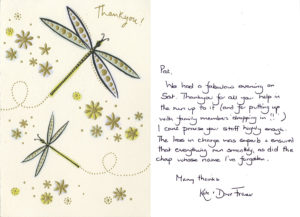 Thankyou!
We had a fabulous evening on
Sat. Thankyou for all your help in
the run up to it (and for putting up
with family members dropping in "!")
I can't praise your staff highly enough.
The lass in charge was superb & ensured
that everything ran smoothly, as did the
chap whose name I've forgotten.
Many thanks
Kate & Dave